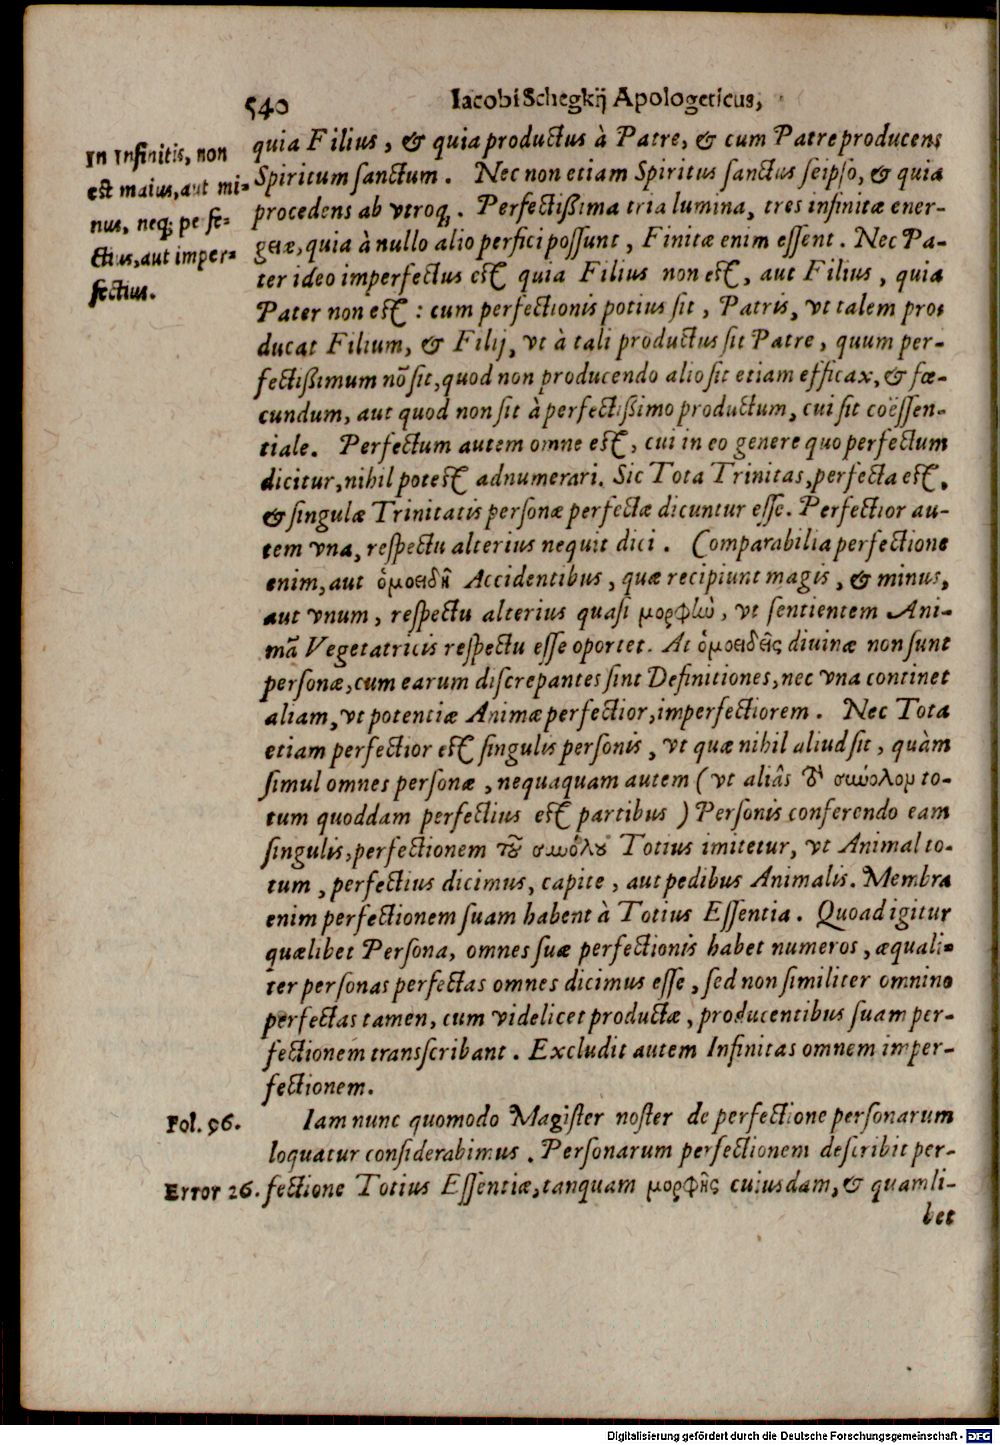 540 Iacobi Schegkij Apologeticus,
In Infinitis, non
est maius, aut mi-
nus, neq; pe fe-
ctius, aut imper-
fectius.
quia Filius, & quia productus à Patre, & cum Patre producens
Spiritum sanctum. Nec non etiam Spiritus sanctus seipso, & quia
procedens ab vtroq;. Perfectißima tria lumina, tres infinitæ ener-
geiæ, quia à nullo alio perfici possunt, Finitæ enim essent. Nec Pa-
ter ideo imperfectus est quia Filius non est, aut Filius, quia
Pater non est: cum perfectionis potius sit, Patris, vt talem pro-
ducat Filium, & Filij, vt à tali productus sit Patre, quum per-
fectißimum nõ sit, quod non producendo alio sit etiam efficax, & fœ-
cundum, aut quod non sit à perfectißimo productum, cui sit coëssen-
tiale. Perfectum autem omne est, cui in eo genere quo perfectum
dicitur, nihil potest adnumerari. Sic Tota Trinitas, perfecta est,
& singulæ Trinitatis personæ perfectæ dicuntur esse. Perfectior au-
tem vna, respectu alterius nequit dici. Comparabilia perfectione
enim, aut ὁμοειδῆ Accidentibus, quæ recipiunt magis, & minus,
aut vnum, respectu alterius quasi μορφὼ, vt sentientem Ani-
mã Vegetatricis respectu esse oportet. At ὁμοειδεῖς diuinæ non sunt
personæ, cum earum discrepantes sint Definitiones, nec vna continet
aliam, vt potentiæ Animæ perfectior, imperfectiorem. Nec Tota
etiam perfectior est singulis personis, vt quæ nihil aliud sit, quàm
simul omnes personæ, nequaquam autem (vt aliâs τὸ σωύολομ to-
tum quoddam perfectius est partibus) Personis conferendo eam
singulis, perfectionem τοῦ σωόλου Totius imitetur, vt Animal to-
tum, perfectius dicimus, capite, aut pedibus Animalis. Membra
enim perfectionem suam habent à Totius Essentia. Quoad igitur
quælibet Persona, omnes suæ perfectionis habet numeros, æquali-
ter personas perfectas omnes dicimus esse, sed non similiter omnino
perfectas tamen, cum videlicet productæ, producentibus suam per-
fectionem transscribant. Excludit autem Infinitas omnem imper-
fectionem.
Fol. 96. Iam nunc quomodo Magister noster de perfectione personarum
loquatur considerabimus. Personarum perfectionem describit per-
Error 26. fectione Totius Essentiæ, tanquam μορφῆς cuiusdam, & quamli-
bet
Digitalisierung gefördert durch die Deutsche Forschungsgemeinschaft - DFG